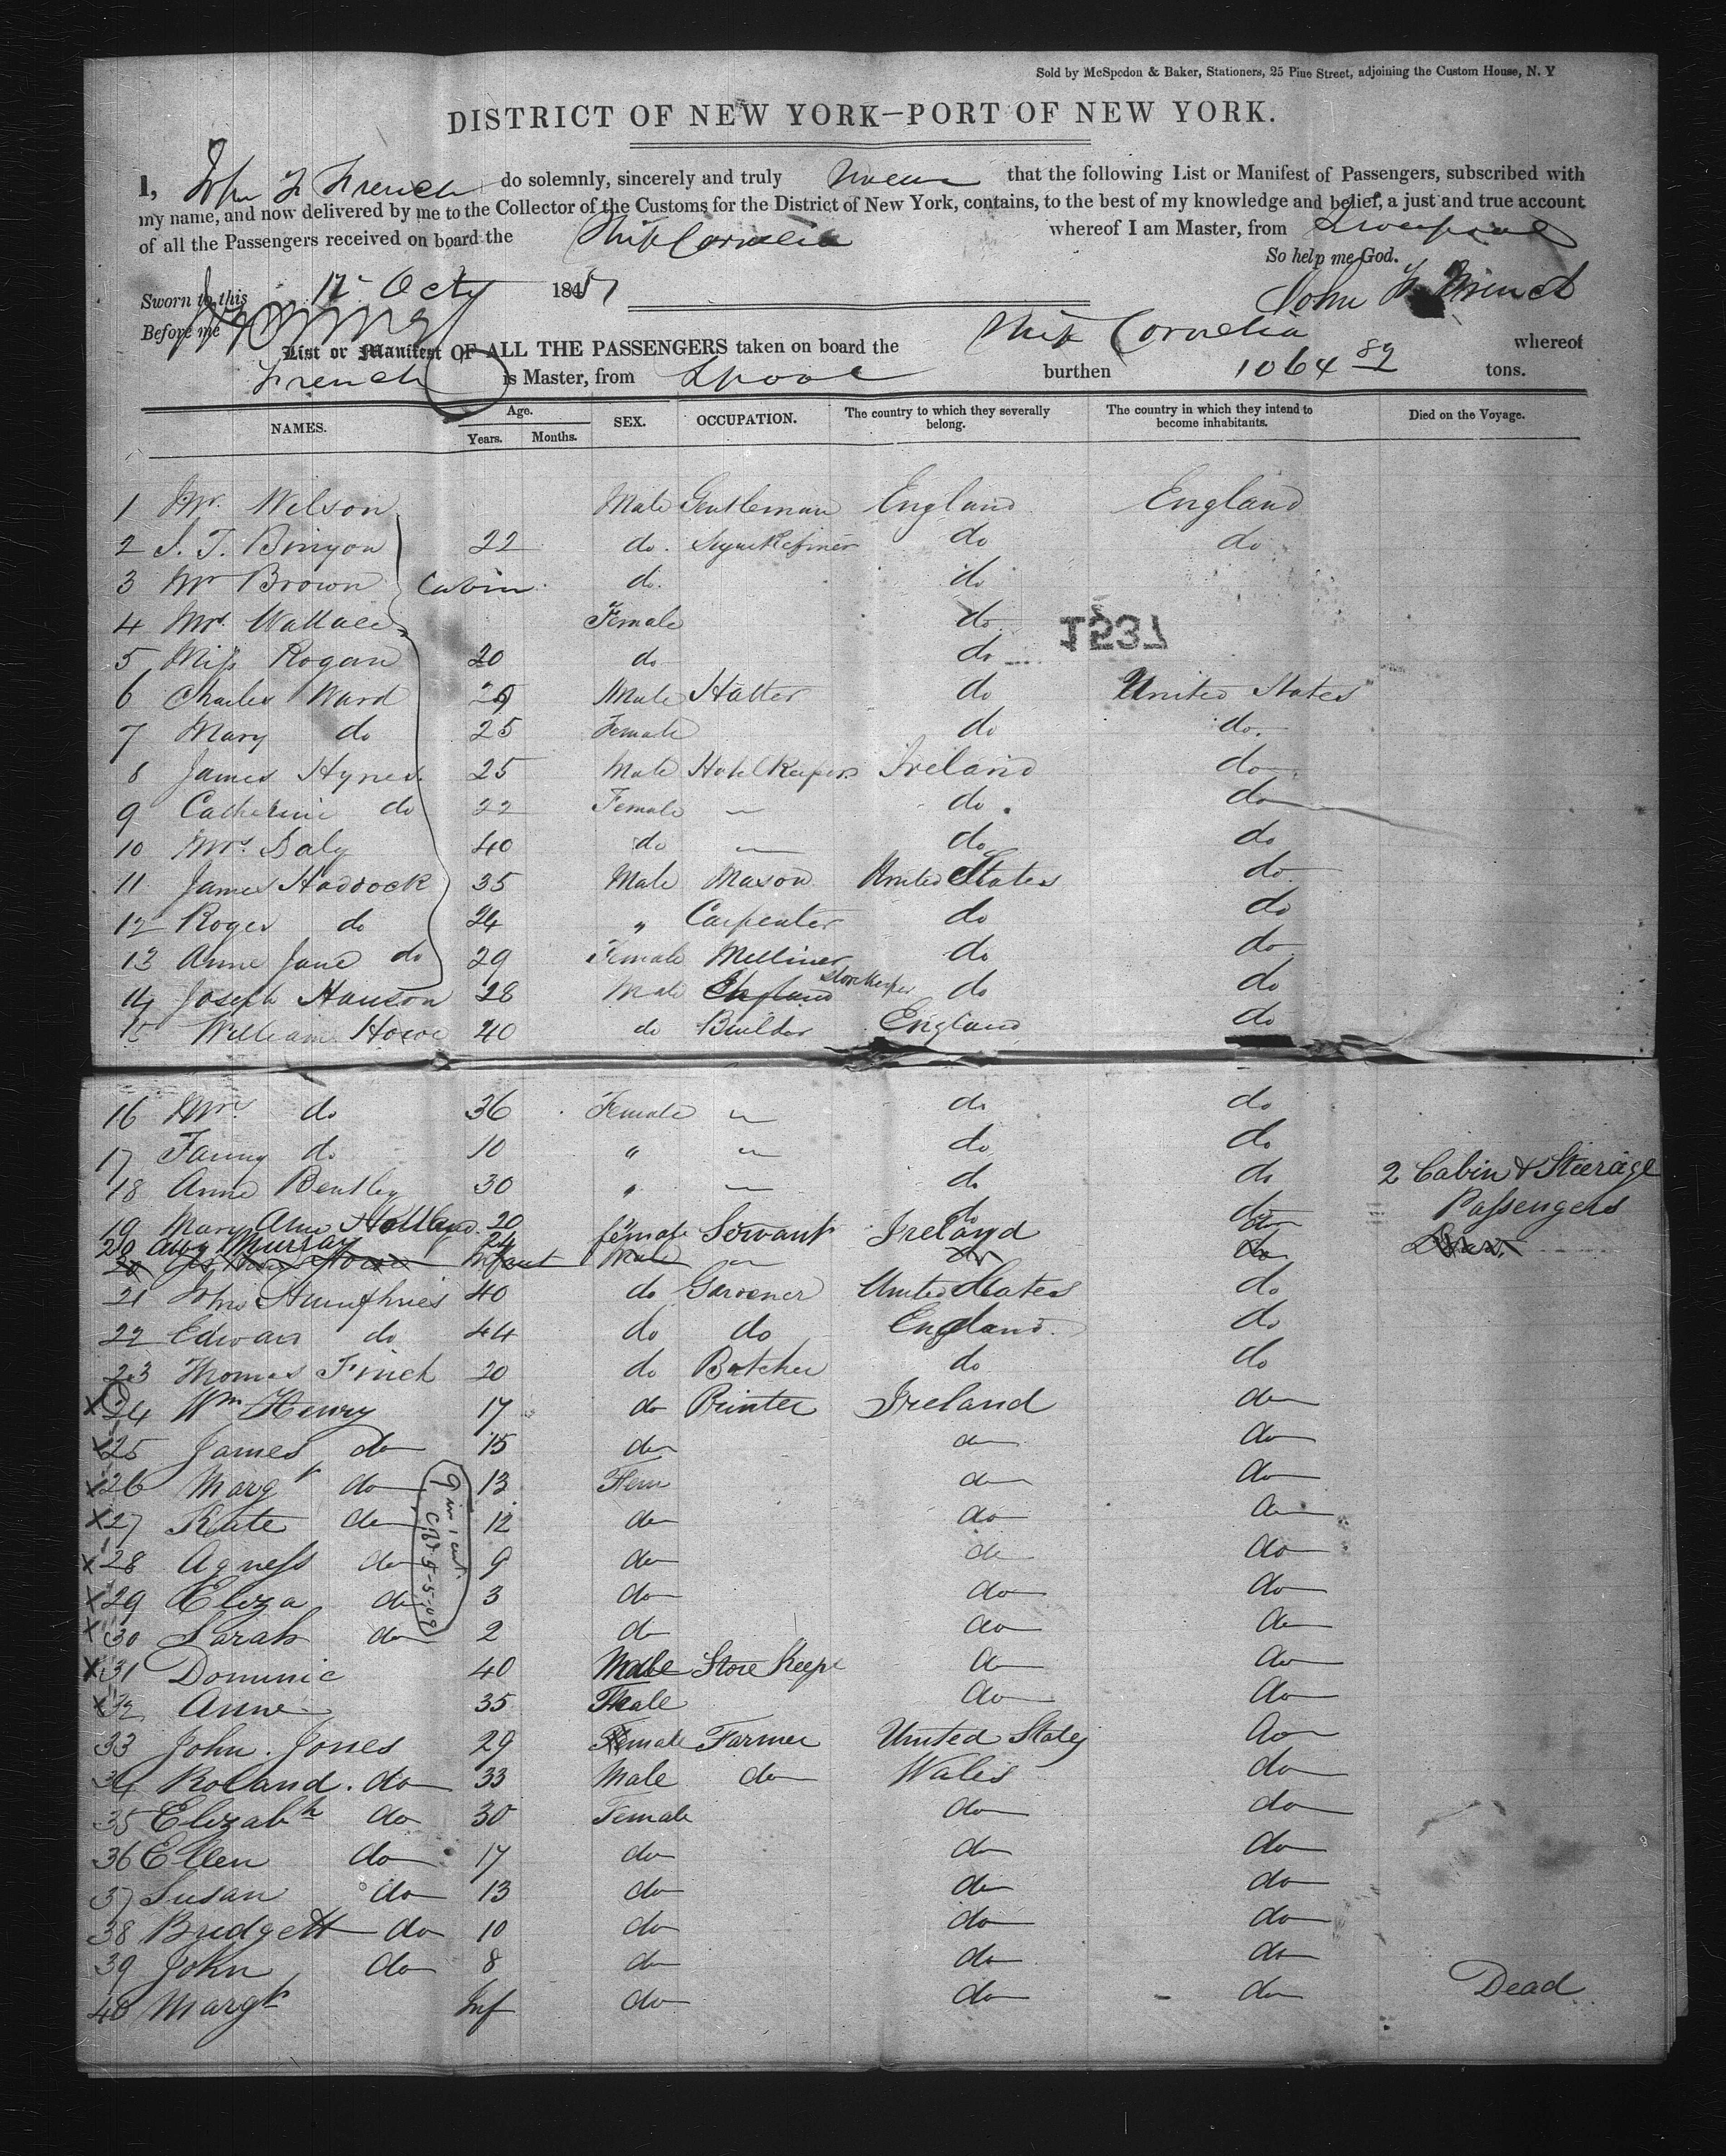 Sold by McSpedon & Baker, Stationers, 25 Pine Street, adjoining the Custom House, N. Y
DISTRICT OF NEW YORK—PORT OF NEW YORK.
I, John F French do solemnly, sincerely and truly swear that the following List or Manifest of Passengers, subscribed with
my name, and now delivered by me to the Collector of the Customs for the District of New York, contains, to the best of my knowledge and belief, a just and true account
of all the Passengers received on board the Ship Cornelia whereof I am Master, from Liverpool
So help me God.
Sworn to this 17 Octr 1851 John F French
Before me
List or Manifest OF ALL THE PASSENGERS taken on board the Ship Cornelia whereof
French is Master, from Lpool burthen 1064 82 tons.
NAMES. Age. Years. Months. SEX. OCCUPATION. The country to which they severally belong. The country in which they intend to become inhabitants. Died on the Voyage.
1 Mr. Wilson Male Gentleman England England
2 S. T. Binyon 22 do. do do
3 Mr Brown Cabin do. do
4 Mrs. Wallace Female do
1537
5 Miss Rogan 20 do do
6 Charles Ward Male Hatter do United States
7 Mary do 25 Female do do.
8 James Hynes 25 Male Hotel Keeper Ireland do
9 Catherine do 22 Female — do. do
10 Mrs. Daly 40 do — do do
11 James Haddock 35 Male Mason United States do
12 Roger do 24 " Carpenter do do
13 Anne Jane do 29 Female Milliner do do
14 Joseph Hanson 28 Male England Storekeeper do do
15 William Howe 40 do Builder England do
16 Mrs. do 36 Female — do do
17 Fanny do 10 " — do do
18 Anne Bentley 30 " — do do 2 Cabin & Steerage
19 Mary Ann Holland 20 female Servant Ireland do Passengers
20 Amy Murray 24
20 Infant Male — do do
21 John Humphries 40 do Gardener United States do
22 Edward do 44 do do England do
23 Thomas Finch 20 do Butcher do do
x 24 Wm Henry 17 do Printer Ireland do
x 25 James do 15 do do do
x 26 Margt do 13 Fem do do
x 27 Kate do 12 do do do
x 28 Agness do 9 do do do
x 29 Eliza do 3 do do do
x 30 Sarah do 2 do do do
9 in 1 cert. 5-5-08
x 31 Dominic 40 Male Store Keepr do do
x 32 Anne 35 Female do do
33 John Jones 29 Female Farmer United States do
34 Roland do 33 Male do Wales do
35 Elizabh do 30 Female do do
36 Ellen do 17 do do do
37 Susan do 13 do do do
38 Bridgett do 10 do do do
39 John do 8 do do do
40 Margt Inf do do do Dead